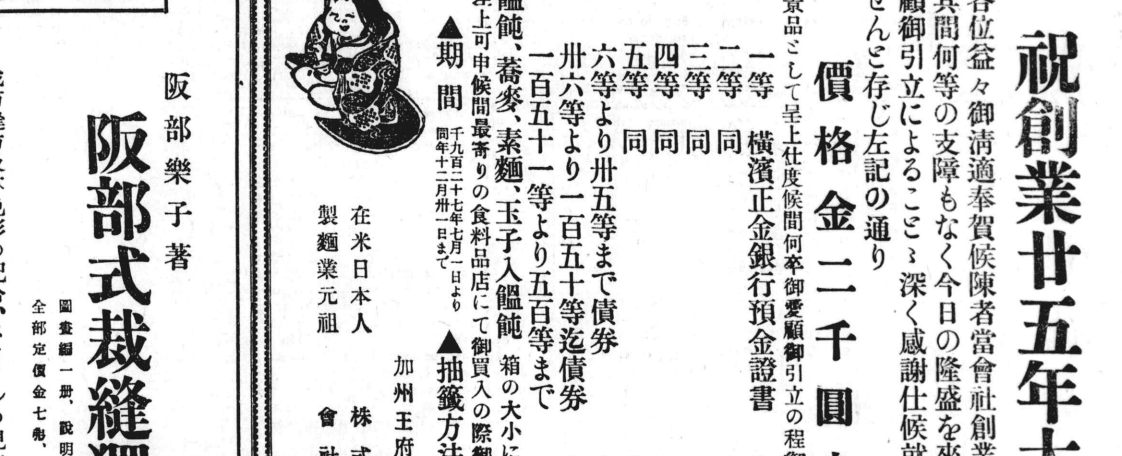 祝創業廿五年
各位益々御淸適奉賀候陳者當會社創業
其間何等の支障もなく今日の隆盛を來
顧御引立によることゝ深く感謝仕候就
せんと存じ左記の通り
價格金二千圓
景品として呈上仕度候間何卒御愛顧御引立の程御
一等 橫濱正金銀行預金證書
二等 同
三等 同
四等 同
五等 同
六等より卅五等まで債券
卅六等より一百五十等迄債券
一百五十一等より五百等まで
饂飩、蕎麥、素麵、玉子入饂飩 箱の大小に
上可申候間最寄りの食料品店にて御買入の際御
▲期間 千九百二十七年七月一日より
同年十二月卅一日まで
▲抽籤方法
加州王府
在米日本人 株式
製麵業元祖 會社
阪部樂子著
阪部式裁縫
圖畫編一册、說明
全部定價金七弗、